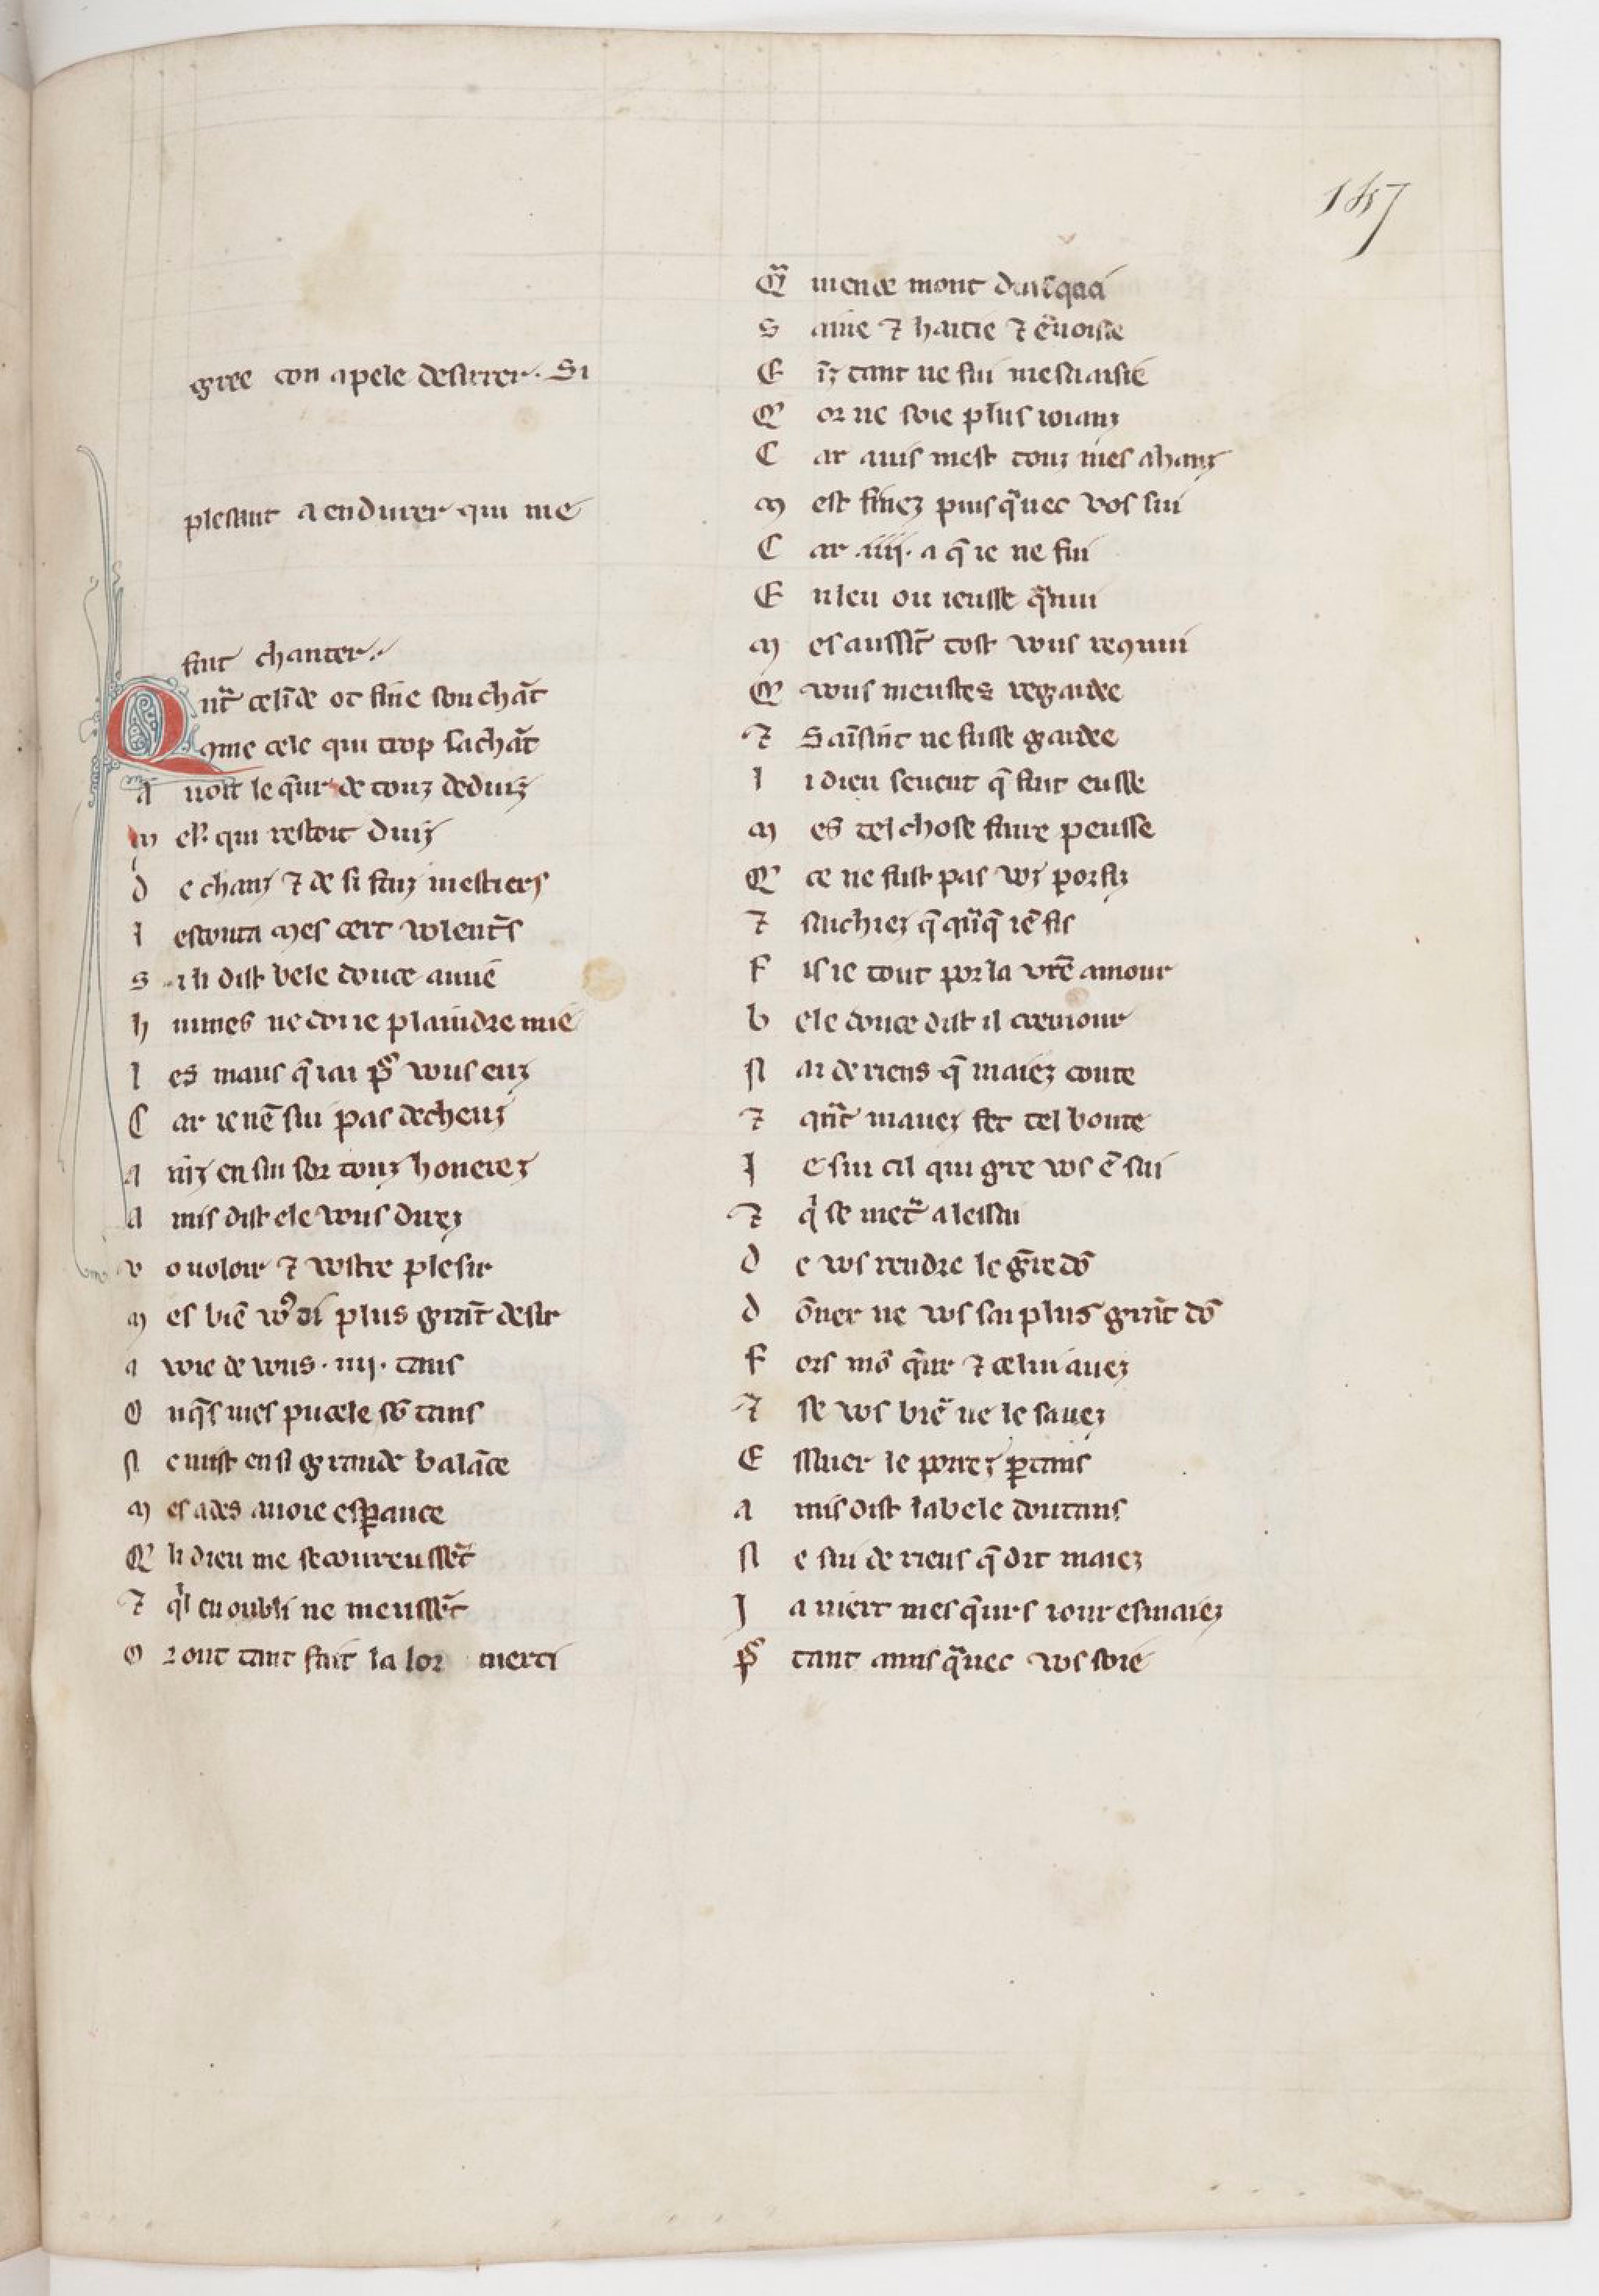 147
gree con apele desirrer. Si
plesant a endurer qui me
fait chanter.
Qnt̃ celĩde ot fine son chãt
9me cele qui trop sachãt
a uoit le q̃ur de touz deduiz
m es qui restoit duiz
d e chanz ⁊ de si faiz mestiers
l escouta mes cert volent̃s
s i li dist bele douce amie
h uimes ne doi ie plaindre mie
l es maus q̃ iai p̃ vous euz
C ar ie nẽ sui pas decheuz
a ĩz en sui sor touz honerez
a mis dist ele vous direz
v o uoloir ⁊ vostre plesir
m es biẽ vꝰ di plus grãt desir
a voie de vous .iiij. tans
O nq̃s mes pucele sõ tans
n e mist en si grande balãce
m es ades auoie esꝑance
Q li dieu me secoureussẽt
⁊ qͥl en oubli ne meussẽt
o r ont tant fait la lor merci
Qͣ mende mont
s aine ⁊ haitie ⁊ ẽuoisie
E ĩz tant ne fui mesaaisie
Q or ne soie plus ioianz
C ar auis mest touz mes ahanz
m est finez puis qͣuec vos sui
C ar .iiij. a q̃ ie ne fui
E n leu ou ieusse qͣnui
m es aussit̃ tost vous requiu
Q vous meustes regardee
⁊ Saĩsint ne fusse gardee
l i dieu seuent q̃ fait eusse
m es tel chose faire peusse
Q ce ne fust pas vz porfiz
⁊ sachiez q̃ qͥnq̃ iẽ fis
F is ie tout por la vrẽ amour
b ele douce dist il cremour
n ai de riens q̃ maiez conte
⁊ qnͣt mauez fet tel bonte
I e sui cil qui gre vos ẽ sai
⁊ qͥ se metͣ a lessai
d e vos rendre le gͥredõ
d õner ne vos sai plus grãt dõ
F ors mõ q̃ur ⁊ celui auez
⁊ se vos biẽ ne le sauez
E ssaier le porrez ꝑtans
a mis dist la bele doutans
n e sui de riens q̃ dit maiez
J a niert mes q̃urs iour esmaiez
p̃ tant amis qͣuec vos soie